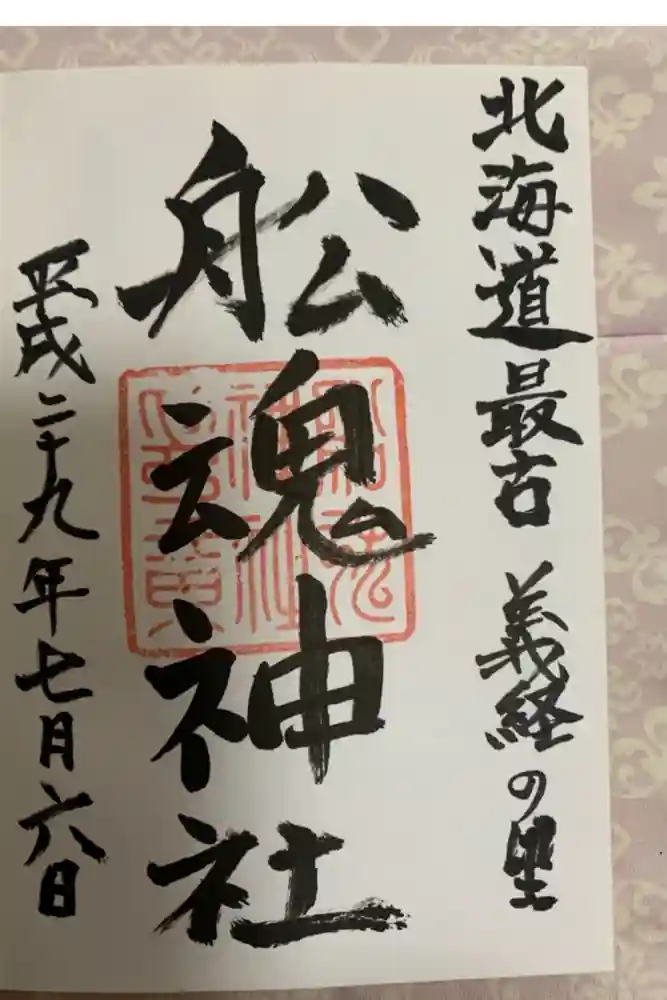 北海道最古 義経の里
舩魂神社
平成二十九年七月六日